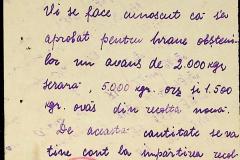 Vi se face cunoscut că s'a
aprobat pentru hrana obșteni
lor un avans de 2.000 kgr
secară, 5.000 kgr. orz și 1.500
kgr. ovăs din recolta nouă.
De această cantitate se va
ține cont la împărțirea recol